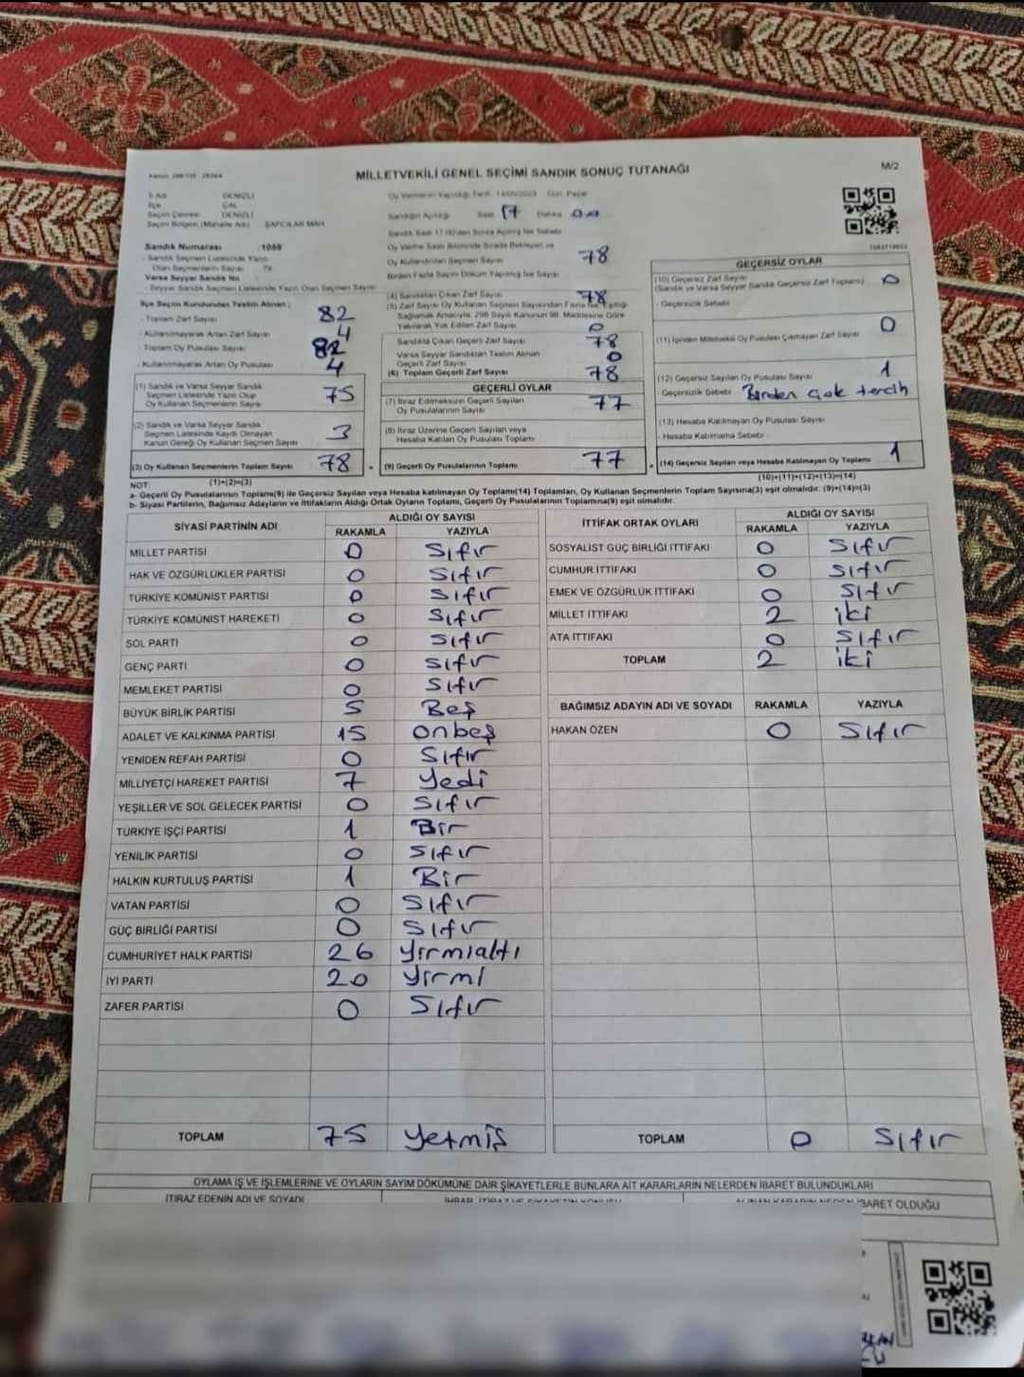 MİLLETVEKİLİ GENEL SEÇİMİ SANDIK SONUÇ TUTANAĞI
M/2
İl Adı DENİZLİ
İlçe ÇAL
Seçim Çevresi DENİZLİ
Sandık Numarası :1088
Saat 17 Dakika 00
Oy Kullandırılan Seçmen Sayısı 78
İlçe Seçim Kurulundan Teslim Alınan ;
- Toplam Zarf Sayısı 82
- Kullanılmayarak Artan Zarf Sayısı 4
- Toplam Oy Pusulası Sayısı 82
- Kullanılmayarak Artan Oy Pusulası 4
(1) Sandık ve Varsa Seyyar Sandık
Seçmen Listesinde Yazılı Olup
Oy Kullanan Seçmenlerin Sayısı 75
(2) Sandık ve Varsa Seyyar Sandık
Seçmen Listesinde Kaydı Olmayan
Kanun Gereği Oy Kullanan Seçmen Sayısı 3
(3) Oy Kullanan Seçmenlerin Toplam Sayısı 78
(1)+(2)=(3)
(4) Sandıktan Çıkan Zarf Sayısı 78
(5) Zarf Sayısı Oy Kullanan Seçmen Sayısından Fazla İse, Eşitliği
Sağlamak Amacıyla, 298 Sayılı Kanunun 98. Maddesine Göre
Yakılarak Yok Edilen Zarf Sayısı 0
Sandıkta Çıkan Geçerli Zarf Sayısı 78
Varsa Seyyar Sandıktan Teslim Alınan
Geçerli Zarf Sayısı 0
(6) Toplam Geçerli Zarf Sayısı 78
GEÇERLİ OYLAR
(7) İtiraz Edilmeksizin Geçerli Sayılan
Oy Pusulalarının Sayısı 77
(8) İtiraz Üzerine Geçerli Sayılan veya
Hesaba Katılan Oy Pusulası Toplamı
(9) Geçerli Oy Pusulalarının Toplamı 77
GEÇERSİZ OYLAR
(10) Geçersiz Zarf Sayısı 0
(Sandık ve Varsa Seyyar Sandık Geçersiz Zarf Toplamı)
- Geçersizlik Sebebi
(11) İçinden Milletvekili Oy Pusulası Çıkmayan Zarf Sayısı 0
(12) Geçersiz Sayılan Oy Pusulası Sayısı 1
- Geçersizlik Sebebi Birden çok tercih
(13) Hesaba Katılmayan Oy Pusulası Sayısı
- Hesaba Katılmama Sebebi
(14) Geçersiz Sayılan veya Hesaba Katılmayan Oy Toplamı 1
(10)+(11)+(12)+(13)=(14)
NOT:
a- Geçerli Oy Pusulalarının Toplamı(9) ile Geçersiz Sayılan veya Hesaba katılmayan Oy Toplamı(14) Toplamları, Oy Kullanan Seçmenlerin Toplam Sayısına(3) eşit olmalıdır. (9)+(14)=(3)
b- Siyasi Partilerin, Bağımsız Adayların ve İttifakların Aldığı Ortak Oyların Toplamı, Geçerli Oy Pusulalarının Toplamına(9) eşit olmalıdır.
SİYASİ PARTİNİN ADI ALDIĞI OY SAYISI
RAKAMLA YAZIYLA
MİLLET PARTİSİ 0 Sıfır
HAK VE ÖZGÜRLÜKLER PARTİSİ 0 Sıfır
TÜRKİYE KOMÜNİST PARTİSİ 0 Sıfır
TÜRKİYE KOMÜNİST HAREKETİ 0 Sıfır
SOL PARTİ 0 Sıfır
GENÇ PARTİ 0 Sıfır
MEMLEKET PARTİSİ 0 Sıfır
BÜYÜK BİRLİK PARTİSİ 5 Beş
ADALET VE KALKINMA PARTİSİ 15 onbeş
YENİDEN REFAH PARTİSİ 0 Sıfır
MİLLİYETÇİ HAREKET PARTİSİ 7 Yedi
YEŞİLLER VE SOL GELECEK PARTİSİ 0 Sıfır
TÜRKİYE İŞÇİ PARTİSİ 1 Bir
YENİLİK PARTİSİ 0 Sıfır
HALKIN KURTULUŞ PARTİSİ 1 Bir
VATAN PARTİSİ 0 Sıfır
GÜÇ BİRLİĞİ PARTİSİ 0 Sıfır
CUMHURİYET HALK PARTİSİ 26 Yirmialtı
İYİ PARTİ 20 Yirmi
ZAFER PARTİSİ 0 Sıfır
TOPLAM 75 Yetmiş
İTTİFAK ORTAK OYLARI ALDIĞI OY SAYISI
RAKAMLA YAZIYLA
SOSYALİST GÜÇ BİRLİĞİ İTTİFAKI 0 Sıfır
CUMHUR İTTİFAKI 0 Sıfır
EMEK VE ÖZGÜRLÜK İTTİFAKI 0 Sıfır
MİLLET İTTİFAKI 2 iki
ATA İTTİFAKI 0 Sıfır
TOPLAM 2 iki
BAĞIMSIZ ADAYIN ADI VE SOYADI RAKAMLA YAZIYLA
HAKAN ÖZEN 0 Sıfır
TOPLAM 0 Sıfır
OYLAMA İŞ VE İŞLEMLERİNE VE OYLARIN SAYIM DÖKÜMÜNE DAİR ŞİKAYETLERLE BUNLARA AİT KARARLARIN NELERDEN İBARET BULUNDUKLARI
İTİRAZ EDENİN ADI VE SOYADI
İBARET OLDUĞU